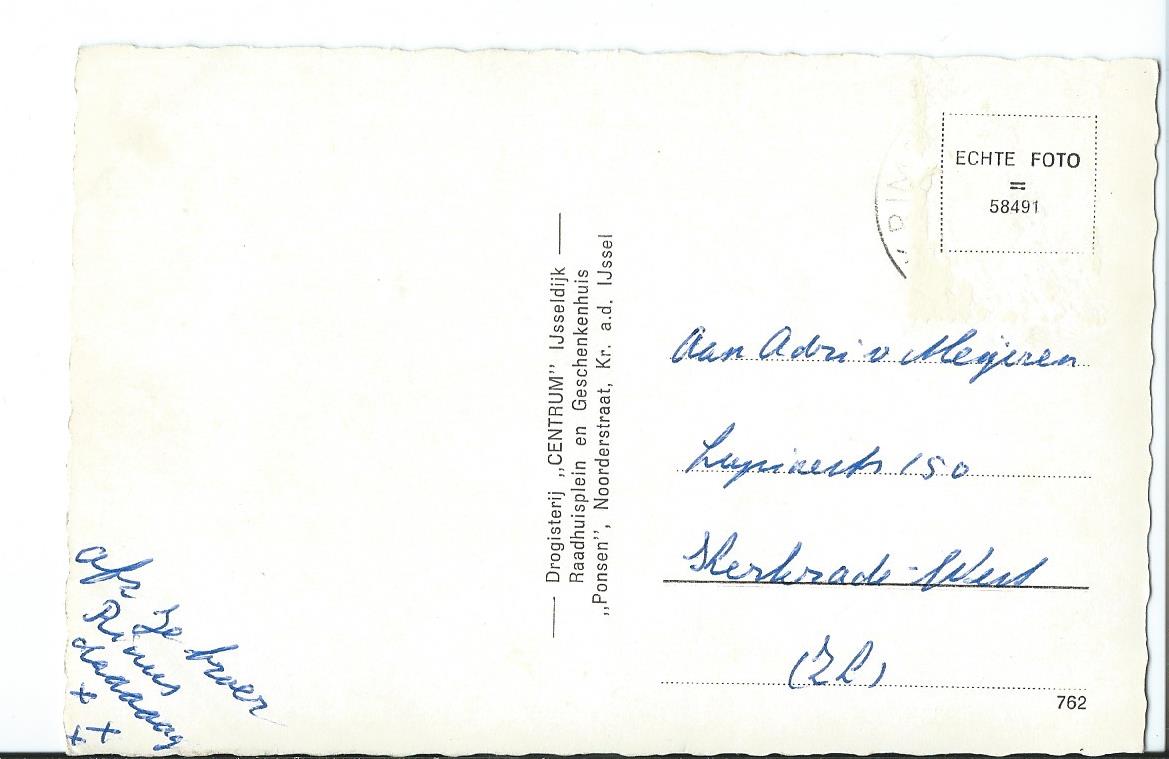 ECHTE FOTO
=
58491
Drogisterij „CENTRUM” IJsseldijk
Raadhuisplein en Geschenkenhuis
„Ponsen”, Noorderstraat, Kr. a.d. IJssel
Aan Adri v Meijeren
Lupinestr 150
Kerkrade-West
(ZL)
762
afz je broer
Rinus
daaaaag
x x
x